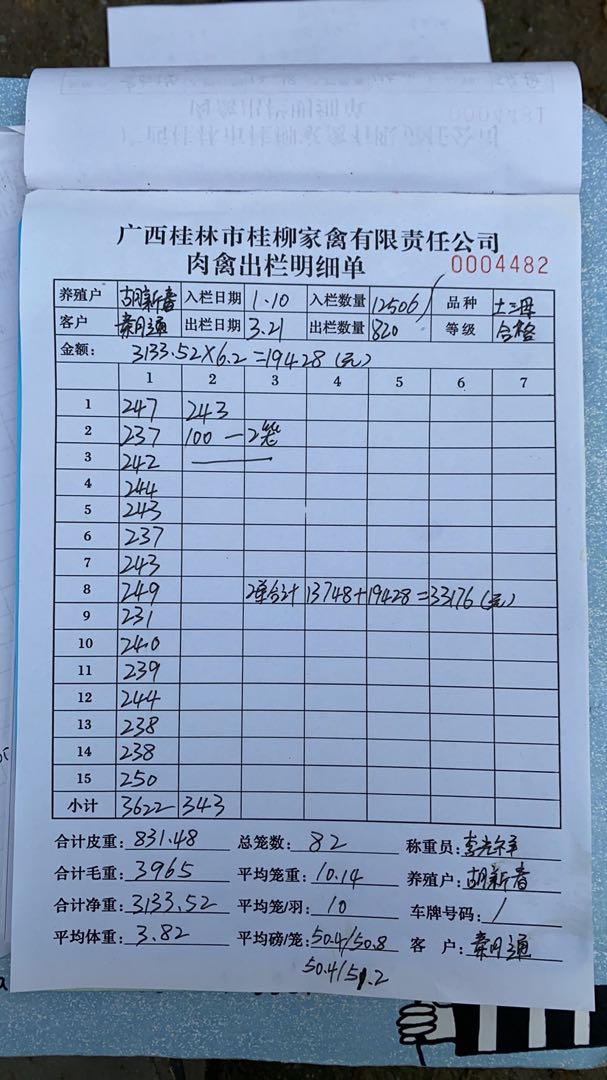 广西桂林市桂柳家禽有限责任公司
肉禽出栏明细单 0004482
养殖户 胡新音 入栏日期 1.10 入栏数量 12506 品种 土三母
客户 出栏日期 3.21 出栏数量 820 等级 合格
金额: 3133.52×6.2=19428(元)
1 2 3 4 5 6 7
1 247 243
2 237 100 — 2笼
3 242
4 244
5 243
6 237
7 243
8 249 2单合计 13748+19428=33176(元)
9 231
10 240
11 239
12 244
13 238
14 238
15 250
小计 3622 343
合计皮重: 831.48 总笼数: 82 称重员:
合计毛重: 3965 平均笼重: 10.14 养殖户: 胡新音
合计净重: 3133.52 平均笼/羽: 10 车牌号码: /
平均体重: 3.82 平均磅/笼: 50.4/50.8 客 户:
50.4/51.2